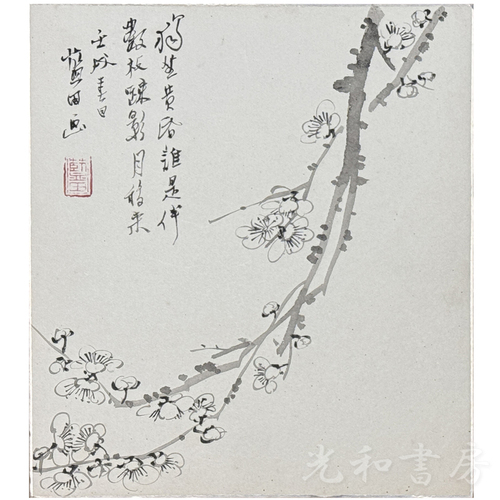 獨坐黄昏誰是伴
數枝踈影月移来
壬戌春日
藍田画
光和書房